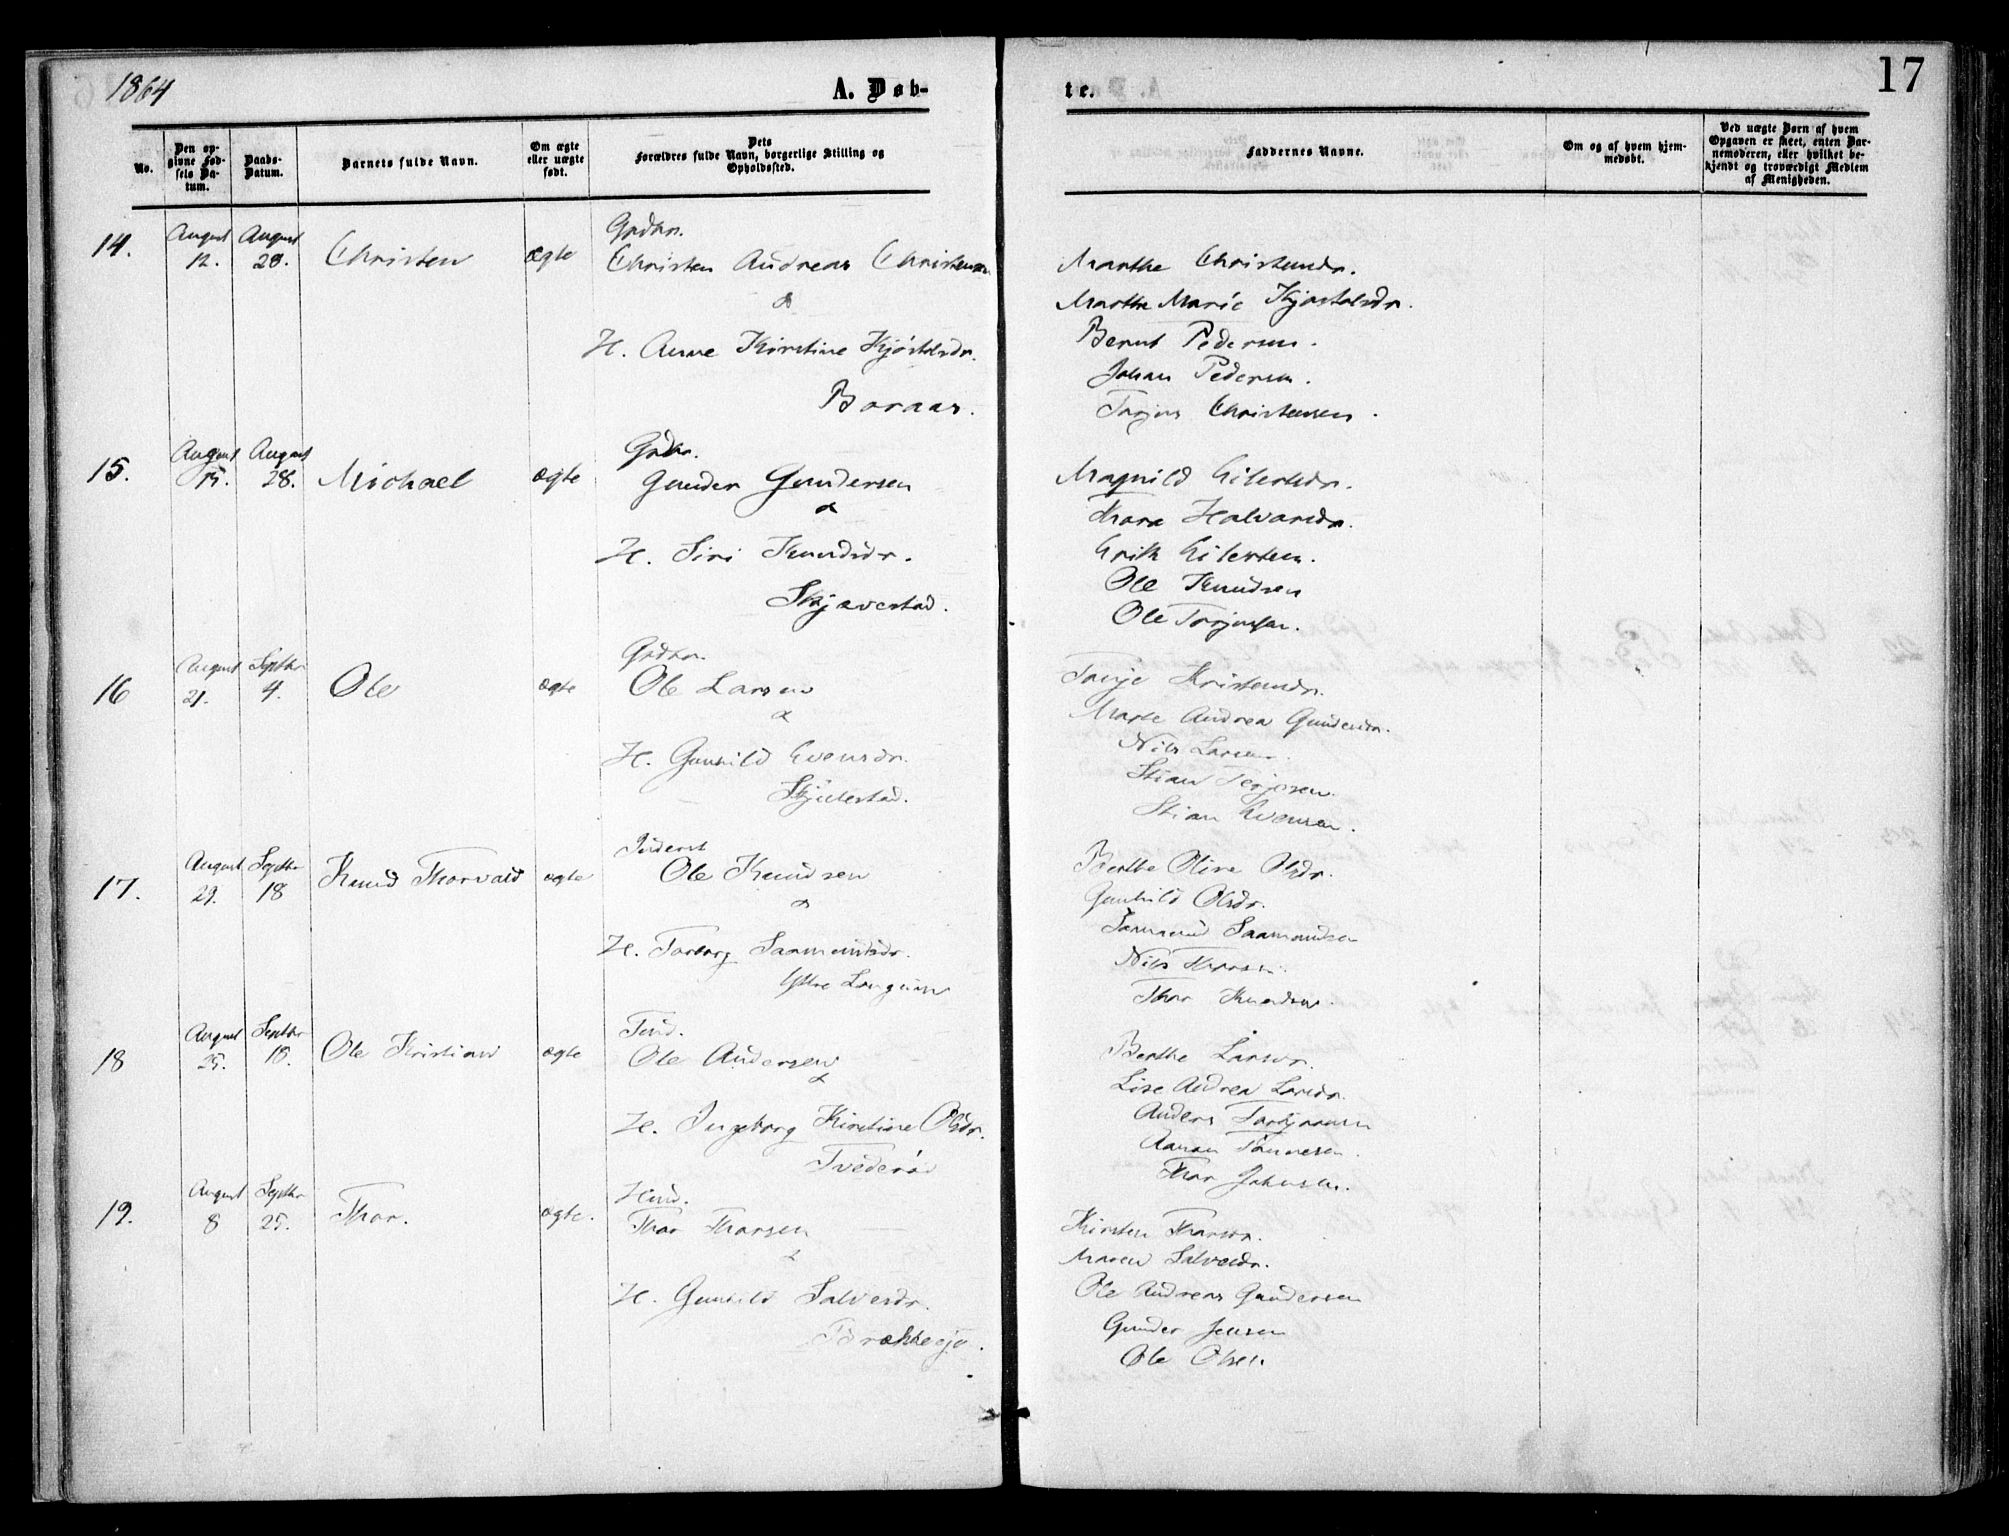 1864
A. Døb-
te.
17
No.
Den op-
givne Fød-
sels Da-
tum.
Daabs-
Datum.
Barnets fulde Navn.
Om ægte
eller uægte
født.
Dets
Forældres fulde Navn, borgerlige Stilling og
Opholdssted.
Faddernes Navne.
Om og af hvem hjem-
medøbt.
Ved uægte Børn af hvem
Opgaven er skeet, enten Bar-
nemoderen, eller hvilket be-
kjendt og troværdigt Medlem
af Menigheden.
14. August 12. August 28. Christen ægte
Grdbr.
Christen Andreas Christensen
&
H. Anne Kirstine Kjøstelsdr.
Boraas.
Marthe Christensdr.
Marthe Marie Kjøstelsdr.
Bernt Pedersen.
Johan Pedersen.
Torjus Christensen.
15. August 15. August 28. Michael ægte
Grdbr.
Gunder Gundersen
&
H. Siri Knudsdr.
Skjævestad.
Magnild Eilertsdr.
Thora Halvorsdr.
Erik Eilertsen.
Ole Knudsen
Ole Torjussen.
16 August 21. Septbr 4. Ole ægte
Grdbr.
Ole Larsen
&
H. Gunhild Evensdr.
Skjulestad.
Tarje Kristensdr.
Marte Andrea Gundersdr.
Nils Larsen.
Stian Terjesen.
Stian Evensen.
17. August 29. Septbr 18 Knud Thorvald ægte
Inderst
Ole Knudsen
&
H. Torborg Saamundsdr.
Ytre Langum
Berthe Oline Olsdr.
Gunhild Olsdr.
Saamund Saamundsen
Nils
Thor Knudsen.
18 August 25. Septbr 18. Ole Kristian ægte
Ole Andersen
&
H. Ingeborg Kirstine Olsdr.
Tvederød
Berthe Larsdr.
Lise Andrea Larsdr.
Anders
Aanon Tønnesen.
Thor Johnsen.
19. August 8 Septbr 25. Thor. ægte.
Huid.
Thor Thorsen
&
H. Gunhild Salvesdr.
Brækkesjø.
Kirsten Thorsdr.
Maren Salvesdr.
Ole Andreas Gundersen
Gunder Jensen
Ole Olsen